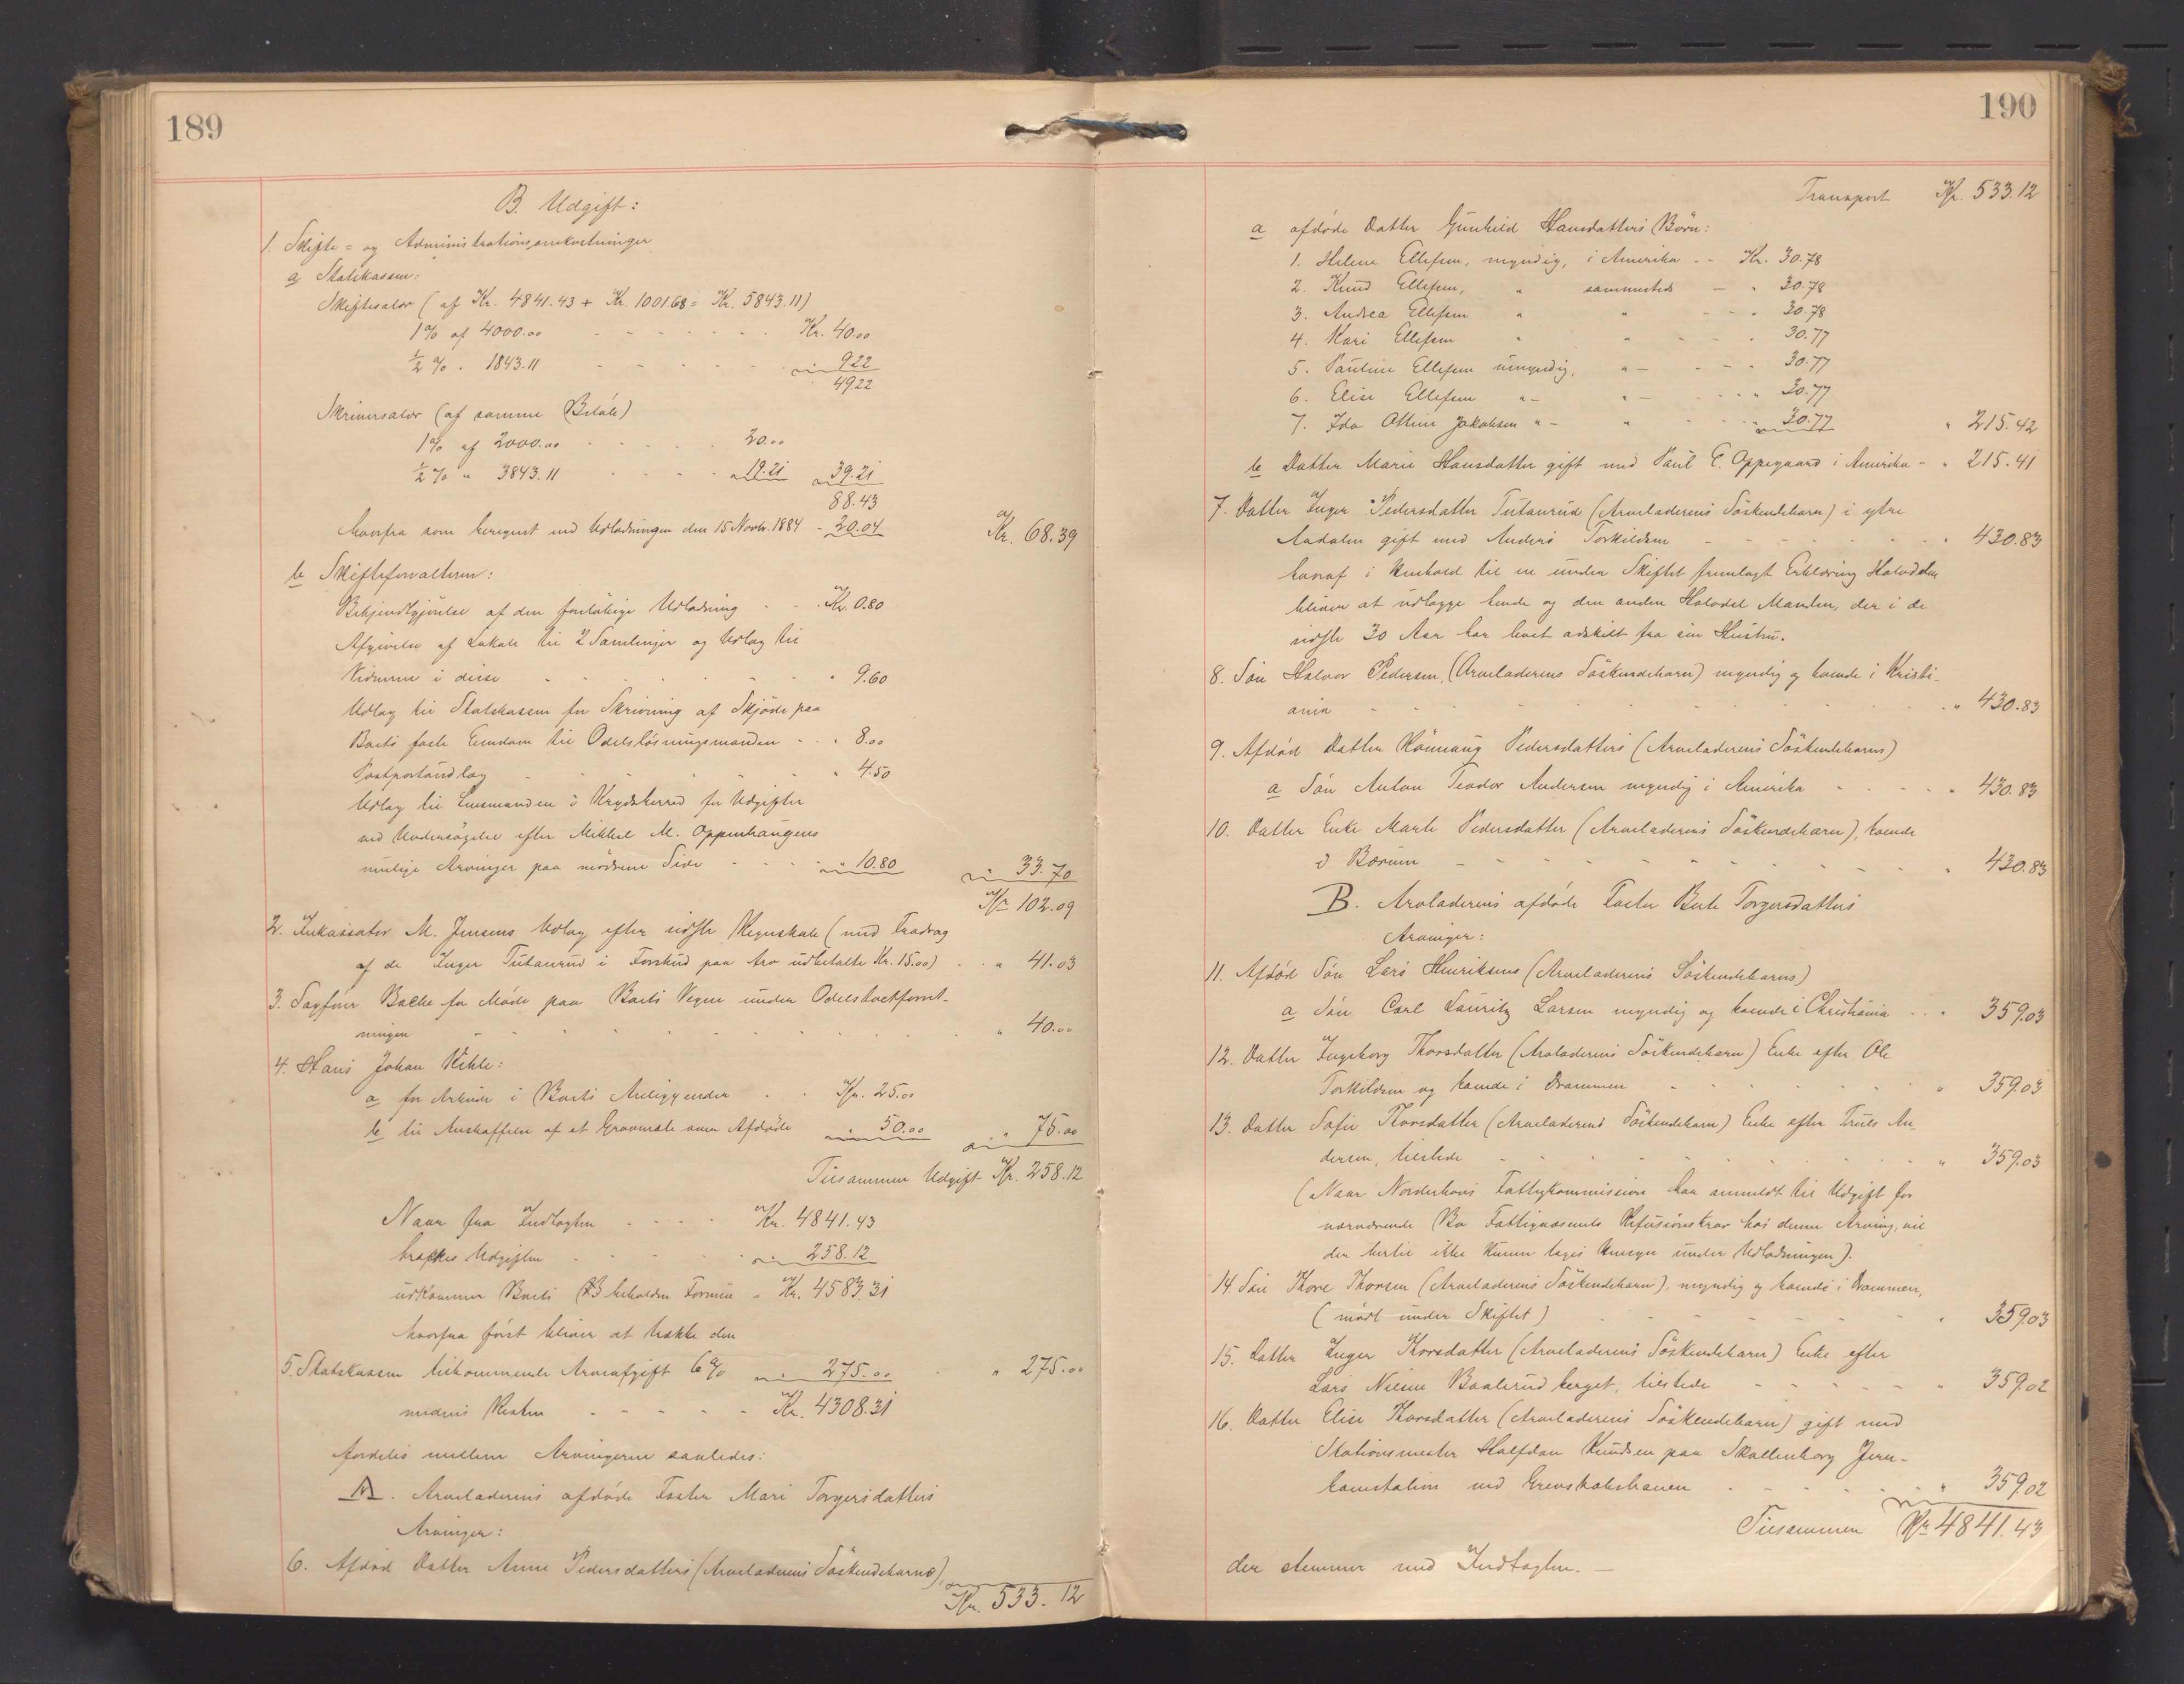 189
B. Udgift:
1. Skifte= og Administrationsomkostninger
a Statskassen:
Skiftesalær (af Kr. 4841.43 + Kr. 1001.68 = Kr. 5843.11)
1% af 4000.00 - - - - - Kr. 40.00
½ % " 1843.11 - - - - - " 9.22
49.22
Skriversalær (af samme Beløb)
1% af 2000.00 - - - - 20.00
½ % " 3843.11 - - - - 19.21 39.21
88.43
hvorfra som beregnet ved Udlodningen den 15 Novbr. 1884 - 20.04 Kr. 68.39
b Skifteforvalteren:
Bekjendtgjørelse af den foreløbige Udlodning - - Kr. 0.80
Afgivelse af Lokale til 2 Samlinger og Udlæg til
Vidnerne i disse " 9.60
Udlæg til Statskassen for Skrivning af Skjøde paa
Boets faste Eiendom til Odelsløsningsmanden - " 8.00
Postportoudlæg " 4.50
Udlæg til Lensmanden i Krydsherred for Udgifter
ved Undersøgelse efter Mikkel M. Oppenhaugens
mulige Arvinger paa mødrene Side - - - " 10.80 " 33.70
Kr. 102.09
2. Inkassator M. Jensens Udlæg efter sidste Regnskab (med Fradrag
af de Inger Tutanrud i Forskud paa Arv udbetalte Kr. 15.00) - " 41.03
3. Sagfører Bache for Møde paa Boets Vegne under Odelstaxtforret-
ningen " 40.00
4. Hans Johan Kihle:
a for Arbeide i Boets Anliggender - - Kr. 25.00
b til Anskaffelse af et Gravmæle over Afdøde " 50.00 " 75.00
Tilsammen Udgift Kr. 258.12
Naar fra Indtægten - - - - Kr. 4841.43
trækkes Udgiften - - - - " 258.12
udkommer Boets Beholdne Formue - Kr. 4583.31
hvorfra først bliver at trække den
5. Statskassen tilkommende Arveafgift 6 % " 275.00 - " 275.00
medens Resten - - - - - Kr. 4308.31
fordeles mellem Arvingerne saaledes:
A. Arveladerens afdøde Faster Mari Torgersdatters
Arvinger:
6. Afdød Datter Anne Pedersdatters (Arveladerens Søskendebarns),
Kr. 533.12
190
Transport Kr. 533.12
a afdøde Datter Gunhild Hansdatters Børn:
1. Helene Ellefsen, myndig, i Amerika - - Kr. 30.78
2. Knud Ellefsen, " sammesteds - " 30.78
3. Andrea Ellefsen " " - - " 30.78
4. Kari Ellefsen " " - - " 30.77
5. Pauline Ellefsen umyndig, " - - - " 30.77
6. Elise Ellefsen " - " - - - " 30.77
7. Ida Ottine Jakobsen " - " - - " 30.77 " 215.42
b Datter Marie Hansdatter gift med Paul E. Oppegaard i Amerika - " 215.41
7. Datter Inger Pedersdatter Tutanrud (Arveladerens Søskendebarn) i ytre
Aadalen gift med Anders Torkildsen - - - - - " 430.83
hvoraf i Henhold til en under Skiftet fremlagt Erklæring Halvdelen
bliver at udlægge hende og den anden Halvdel Manden, der i de
sidste 30 Aar har levet adskilt fra sin Hustru.
8. Søn Halvor Pedersen, (Arveladerens Søskendebarn) myndig og boende i Kristi-
ania - - - - - - " 430.83
9. Afdød Datter Rønnaug Pedersdatters (Arveladerens Søskendebarns)
a Søn Anton Teodor Andersen myndig i Amerika - - - - " 430.83
10. Datter Enke Marte Pedersdatter (Arveladerens Søskendebarn), boende
i Bærum - - - - - - " 430.83
B. Arveladerens afdøde Faster Berte Torgersdatters
Arvinger:
11. Afdød Søn Lars Henriksens (Arveladerens Søskendebarns)
a Søn Carl Lauritz Larsen myndig og boende i Christiania - - " 359.03
12. Datter Ingeborg Thorsdatter (Arveladerens Søskendebarn) Enke efter Ole
Torkildsen og boende i Drammen - - - - " 359.03
13. Datter Sofie Thorsdatter (Arveladerens Søskendebarn) Enke efter Truls An-
dersen, tilstede - - - - - - " 359.03
(Naar Norderhovs Fattigkommission har anmeldt til Udgift for
nærværende Bo Fattigvæsenets Refusionskrav hos denne Arving, vil
der hertil ikke kunne tages Hensyn under Udlodningen).
14. Søn Thore Thorsen (Arveladerens Søskendebarn), myndig og boende i Drammen,
(mødt under Skiftet) - - - - - - " 359.03
15. Datter Inger Thorsdatter (Arveladerens Søskendebarn) Enke efter
Lars Nilsen Baalerudberget, tilstede - - - - - " 359.02
16. Datter Elise Thorsdatter (Arveladerens Søskendebarn) gift med
Stationsmester Halfdan Knudsen paa Skollenborg Jern-
banestation ved Grevskabsbanen - - - - - " 359.02
Tilsammen Kr. 4841.43
der stemmer med Indtægten. -